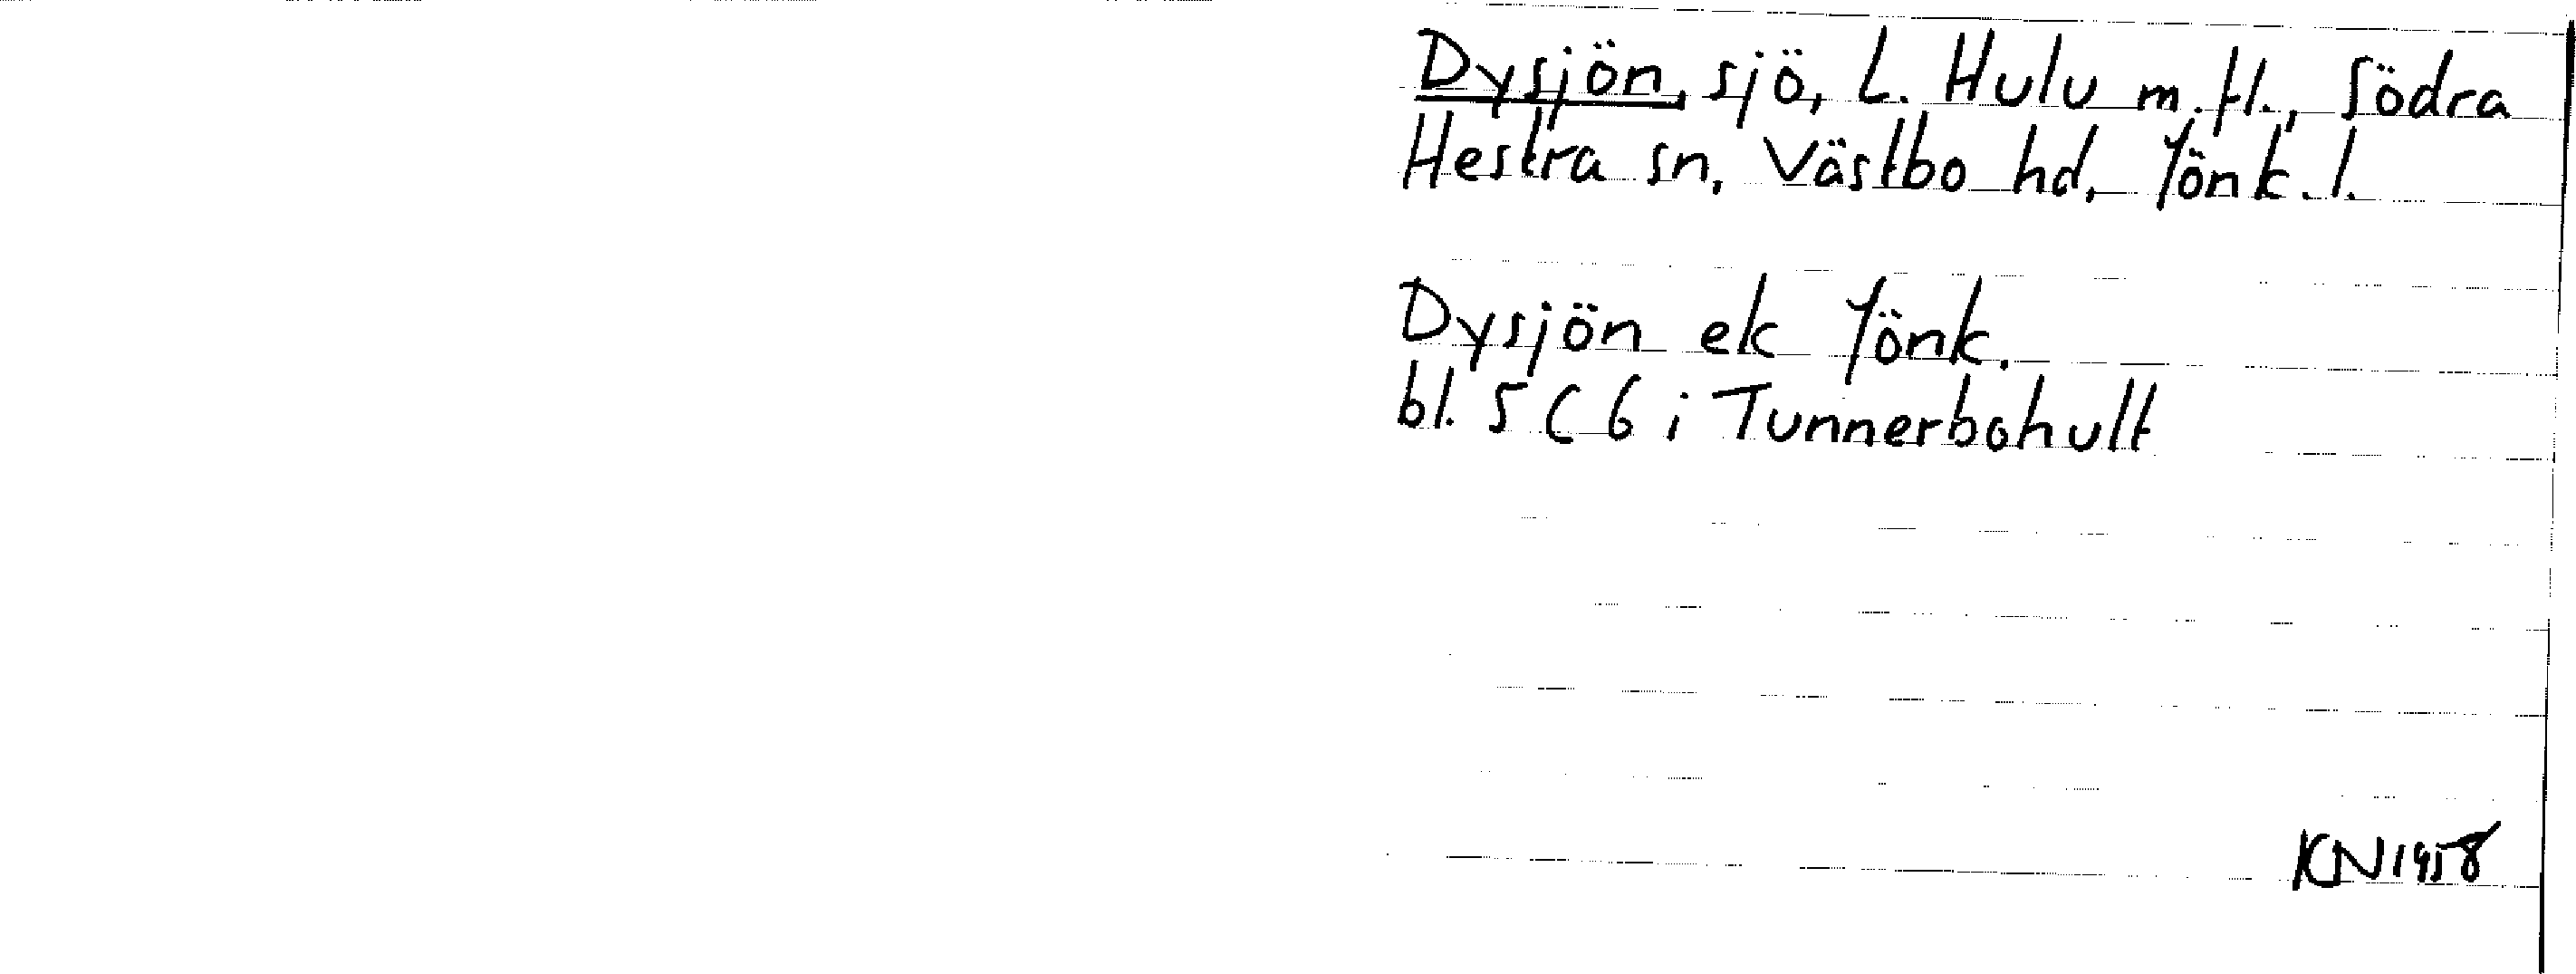 Dysjön, sjö, L. Hulu m.fl., Södra
Hestra sn, Västbo hd, Jönk.l.
Dysjön ek Jönk.
bl. 5 C 6 i Tunnerbohult
KN 1958